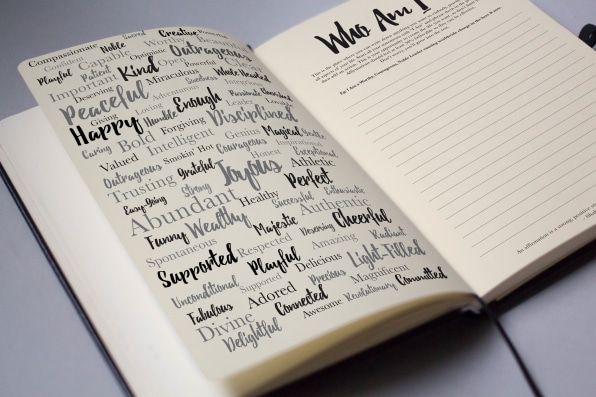 Compassionate Noble Sacred Creative Powerful
Confident Capable Worthy Beautiful
Playful Patient Optimistic Outrageous
Important Kind Open Powerful
Deserving Miraculous Whole Hearted
Peaceful Loving Adventurous Passionate Cherished
Giving Humble Enough Leader Lovable
Happy Forgiving Disciplined
Caring Bold Intelligent Genius Magical
Valued Smokin' Hot Courageous Inspirational
Outrageous Grateful Joyous Honest Exceptional
Trusting Strong Athletic
Easy-Going Perfect
Abundant Healthy Successful Enthusiastic
Funny Wealthy Authentic
Spontaneous Majestic Deserving Cheerful
Supported Respected Amazing Radiant
Playful Delicious Light-Filled
Unconditional Supported Precious Magnificent
Fabulous Adored Connected Revolutionary Committed
Divine Awesome
Delightful
Who Am I
An affirmation is a strong, positive